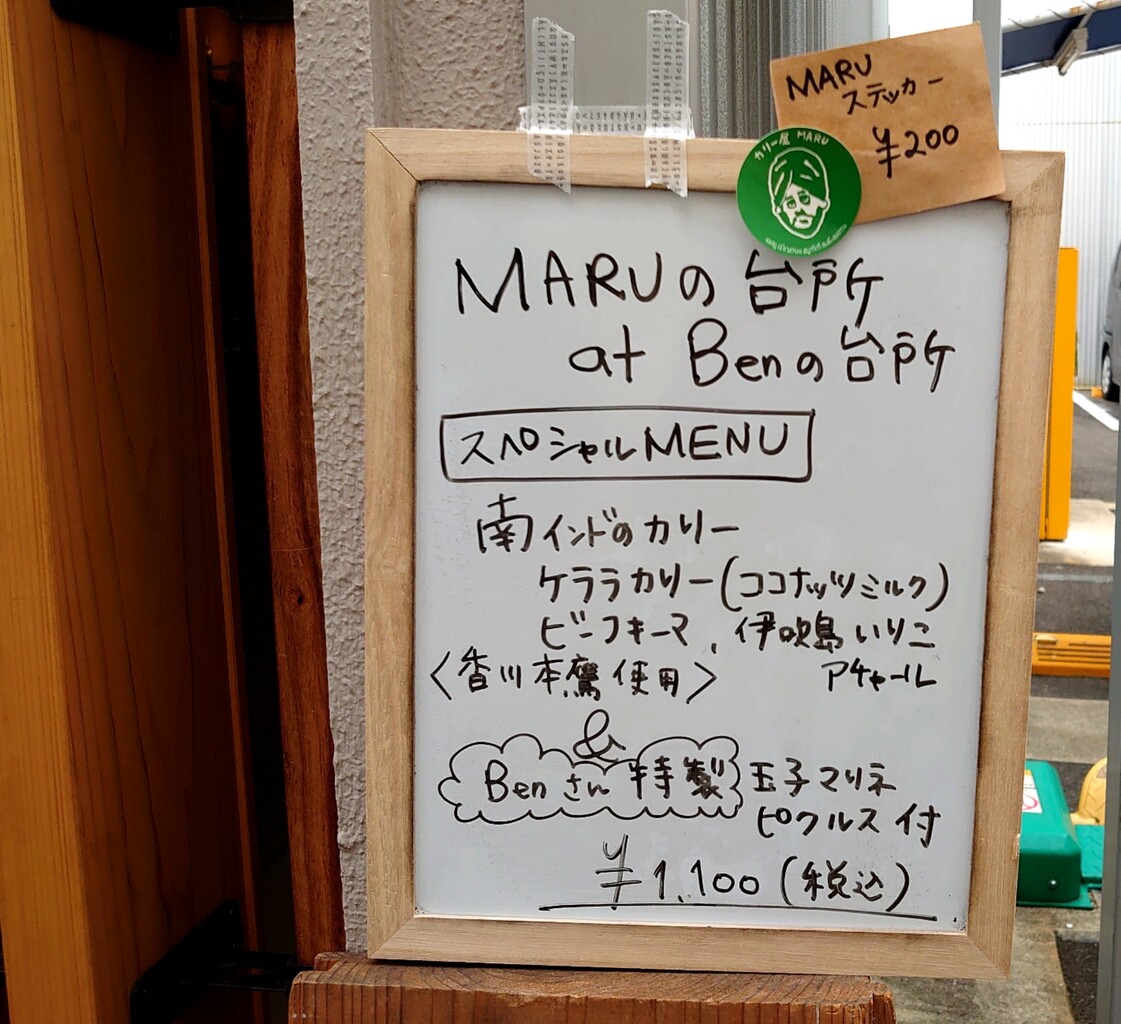 MARU
ステッカー
¥200
カリー屋 MARU
MARUの台所
at Benの台所
スペシャルMENU
南インドのカリー
ケララカリー(ココナッツミルク)
ビーフキーマ、伊吹島いりこ
アチャール
〈香川本鷹使用〉
&
Benさん特製 玉子マリネ
ピクルス付
¥1,100(税込)